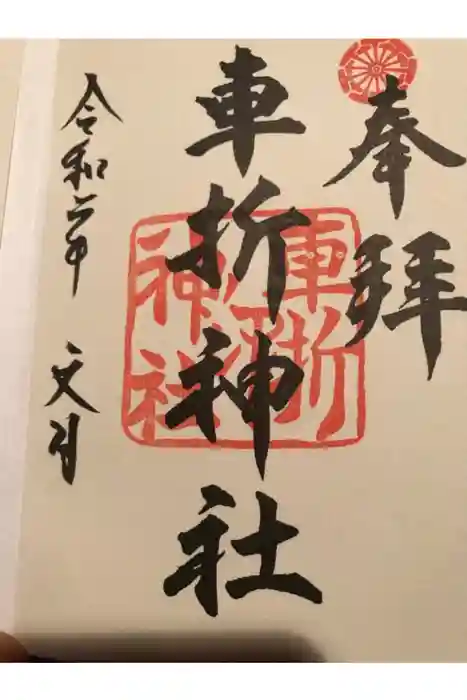 奉拝
車折神社
車折
神社
令和二年 文月